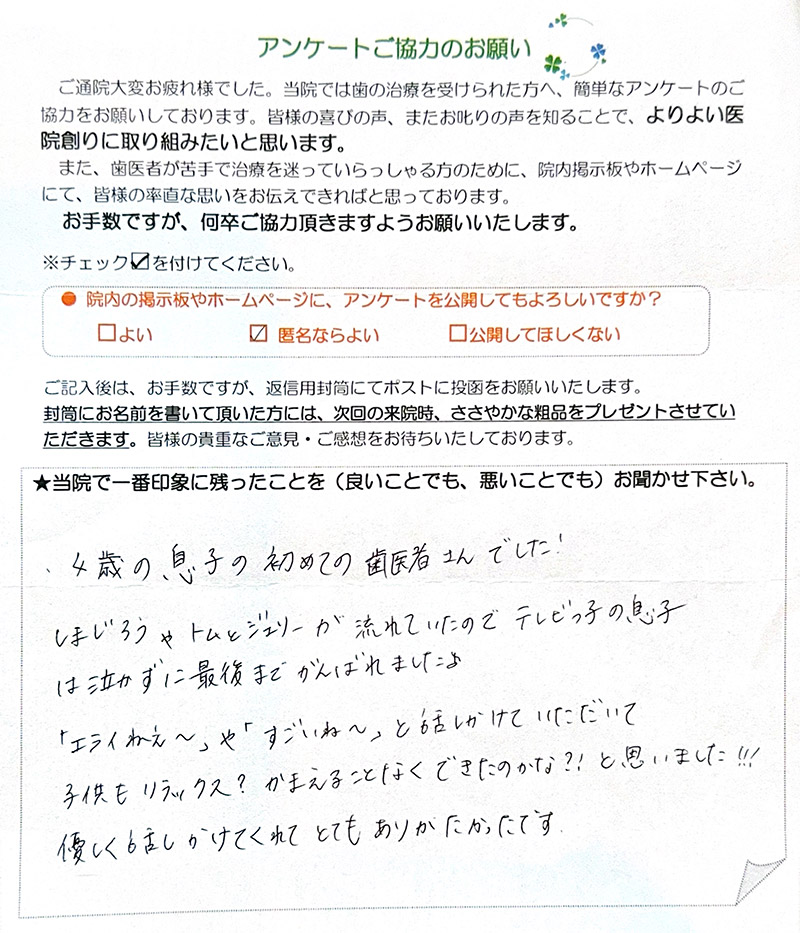 アンケートご協力のお願い
ご通院大変お疲れ様でした。当院では歯の治療を受けられた方へ、簡単なアンケートのご
協力をお願いしております。皆様の喜びの声、またお叱りの声を知ることで、よりよい医
院創りに取り組みたいと思います。
また、歯医者が苦手で治療を迷っていらっしゃる方のために、院内掲示板やホームページ
にて、皆様の率直な思いをお伝えできればと思っております。
お手数ですが、何卒ご協力頂きますようお願いいたします。
※チェック☑を付けてください。
● 院内の掲示板やホームページに、アンケートを公開してもよろしいですか？
□よい ☑ 匿名ならよい □公開してほしくない
ご記入後は、お手数ですが、返信用封筒にてポストに投函をお願いいたします。
封筒にお名前を書いて頂いた方には、次回の来院時、ささやかな粗品をプレゼントさせてい
ただきます。皆様の貴重なご意見・ご感想をお待ちいたしております。
★当院で一番印象に残ったことを（良いことでも、悪いことでも）お聞かせ下さい。
、4歳の息子の初めての歯医者さんでした！
しまじろうやトムとジェリーが流れていたのでテレビっ子の息子
は泣かずに最後までがんばれましたよ
「エライねぇ〜」や「すごいね〜」と話しかけていただいて
子供もリラックス？かまえることなくできたのかな？！と思いました!!!
優しく話しかけてくれてとてもありがたかったです.